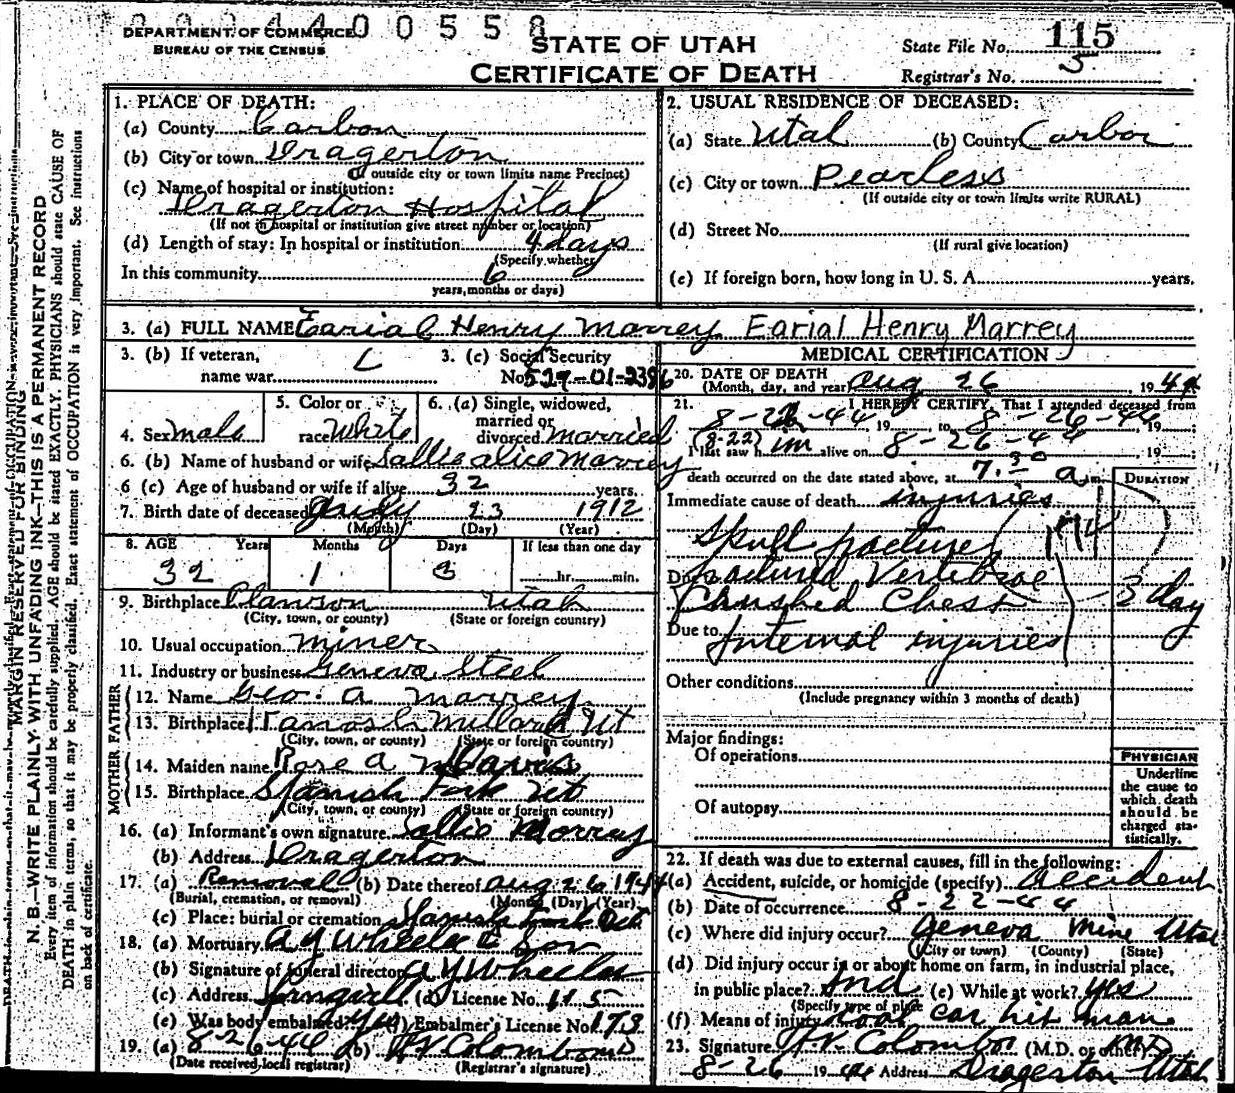 2004400558
DEPARTMENT OF COMMERCE
BUREAU OF THE CENSUS
STATE OF UTAH
CERTIFICATE OF DEATH
State File No. 115
Registrar's No. 5
MARGIN RESERVED FOR BINDING
N. B.—WRITE PLAINLY WITH UNFADING INK—THIS IS A PERMANENT RECORD
Every item of information should be carefully supplied. AGE should be stated EXACTLY. PHYSICIANS should state CAUSE OF
DEATH in plain terms, so that it may be properly classified. Exact statement of OCCUPATION is very important. See instructions
on back of certificate.
1. PLACE OF DEATH:
(a) County Carbon
(b) City or town Dragerton
(If outside city or town limits name Precinct)
(c) Name of hospital or institution:
Dragerton Hospital
(If not in hospital or institution give street number or location)
(d) Length of stay: In hospital or institution 4 days
(Specify whether
In this community 6
years, months or days)
2. USUAL RESIDENCE OF DECEASED:
(a) State Utah (b) County Carbon
(c) City or town Pearless
(If outside city or town limits write RURAL)
(d) Street No.
(If rural give location)
(e) If foreign born, how long in U. S. A. years.
3. (a) FULL NAME Earial Henry Marrey Earial Henry Marrey
3. (b) If veteran,
name war
3. (c) Social Security
No. 529-01-2396
4. Sex male
5. Color or
race White
6. (a) Single, widowed,
married or
divorced married
6. (b) Name of husband or wife Sallie alice Marrey
6 (c) Age of husband or wife if alive 32 years.
7. Birth date of deceased July 23 1912
(Month) (Day) (Year)
8. AGE Years Months Days If less than one day
32 1 3 hr. min.
9. Birthplace Clawson Utah
(City, town, or county) (State or foreign country)
10. Usual occupation miner
11. Industry or business Geneva Steel
FATHER
12. Name Geo. A Marrey
13. Birthplace Kanosh Millard Ut
(City, town, or county) (State or foreign country)
MOTHER
14. Maiden name Rose A Davis
15. Birthplace Spanish Fork Ut
(City, town, or county) (State or foreign country)
16. (a) Informant's own signature Sallie Marrey
(b) Address Dragerton
17. (a) Removal (b) Date thereof Aug 26 1944
(Burial, cremation, or removal) (Month) (Day) (Year)
(c) Place: burial or cremation Spanish Fork Ut
18. (a) Mortuary A Y Wheeler & Son
(b) Signature of funeral director A Y Wheeler
(c) Address Springville (d) License No. 115
(e) Was body embalmed? Yes (f) Embalmer's License No. 173
19. (a) 8-26-44 (b) Colombo MD
(Date received local registrar) (Registrar's signature)
MEDICAL CERTIFICATION
20. DATE OF DEATH
(Month, day, and year) Aug 26, 1944
21. I HEREBY CERTIFY, That I attended deceased from
8-22-44 19 , to 8-26-44 19 ;
(8-22)
I last saw him alive on 8-26-44, 19 ;
death occurred on the date stated above, at 7.30 a m.
DURATION
Immediate cause of death injuries
Skull fracture
Due to fractured Vertebrae
Chrushed Chest
3 day
Due to Internal injuries
Other conditions
(Include pregnancy within 3 months of death)
Major findings:
Of operations
Of autopsy
PHYSICIAN
Underline
the cause to
which death
should be
charged sta-
tistically.
22. If death was due to external causes, fill in the following:
(a) Accident, suicide, or homicide (specify) Accident
(b) Date of occurrence 8-22-44
(c) Where did injury occur? Geneva Mine Utah
(City or town) (County) (State)
(d) Did injury occur in or about home on farm, in industrial place,
in public place? Ind (e) While at work? yes
(Specify type of place)
(f) Means of injury coal car hit man
23. Signature Colombo (M.D. or other) M.D.
8-26 1944 Address Dragerton Utah